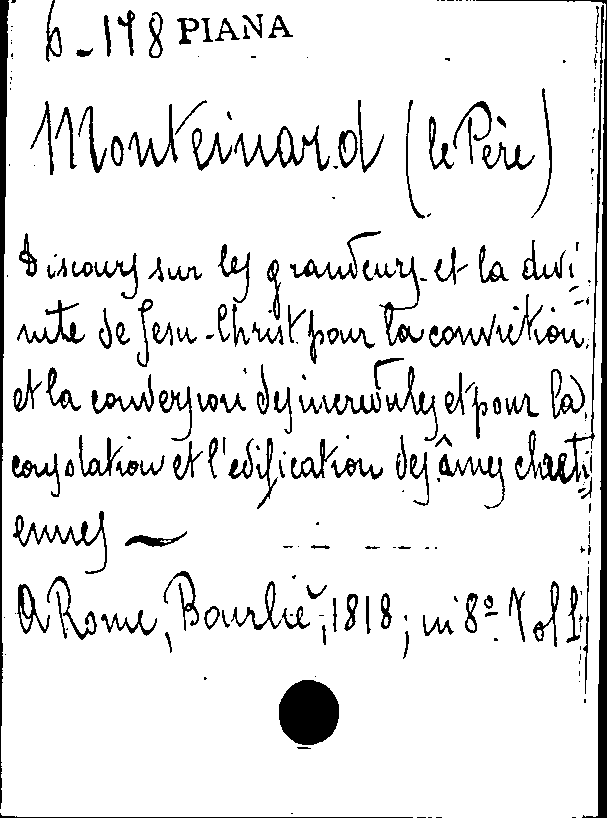 b-178 PIANA
Monteinard (le Père)
Discours sur les grandeurs et la divi
nite de Jesu-Christ pour la conviction
et la conversion des incredules et pour la
consolation et l'edification des âmes chreti
ennes
A Rome, Bourlie, 1818; in 8º. Vol 1